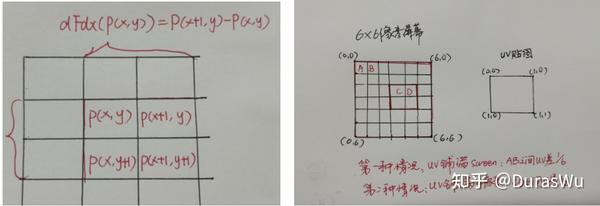 dFdx(P(x,y)) = P(x+1,y)-P(x,y)
P(x,y) P(x+1,y)
P(x,y+1) P(x+1,y+1)
6×6像素屏幕
(0,0) (6,0)
A B
C D
(0,6) (6,6)
UV贴图
(0,0) (1,0)
(1,0) (1,1)
第一种情况,UV铺满screen:AB之间UV差1/6
第二种情况:UV铺
知乎 @DurasWu